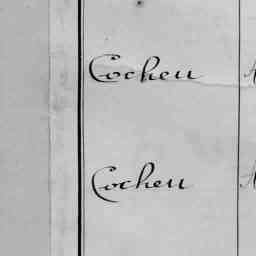 Cochen
Cochen